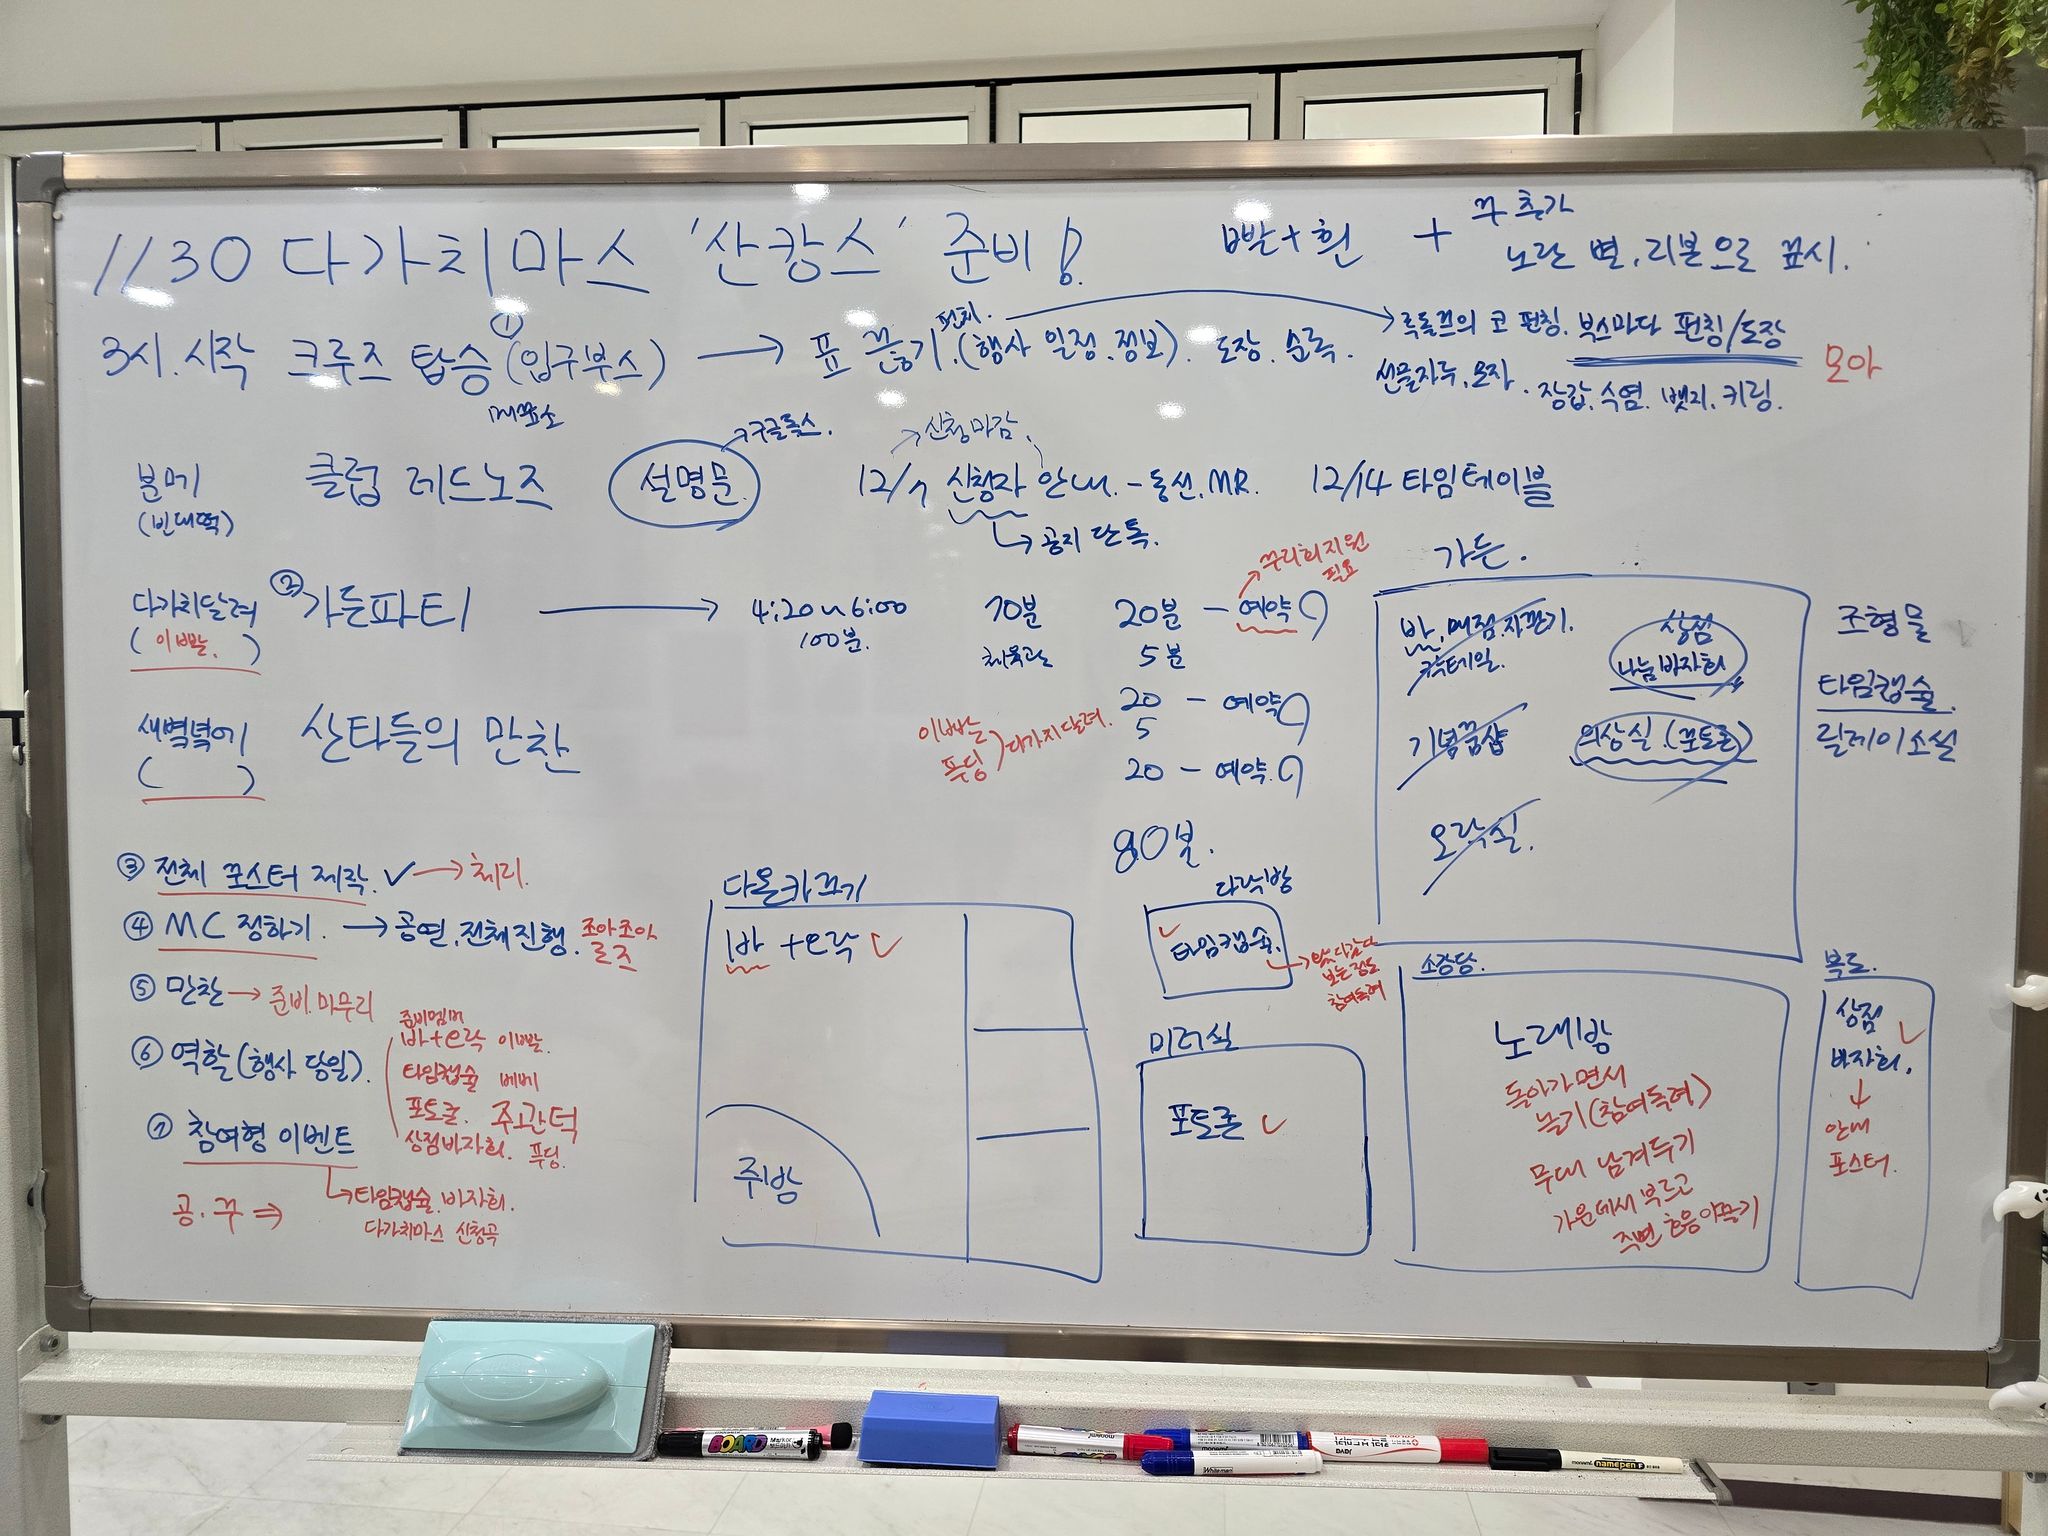 11.30 다가치마스 '산캉스' 준비!
빨+흰 + 꾸 추가
노란 별, 리본으로 표시.
3시.시작 크루즈 탑승 ① (입구부스) → 표 끊기.(행사 일정.정보). 도장. 순록.
매표소
펀치.
루돌프의 코 펀칭. 부스마다 펀칭/도장
선물자루, 모자. 장갑, 수염. 뱃지. 키링.
모아
분메
(빈대떡)
클럽 레드노즈
설명문.
구글폼스.
신청마감.
12/7 신청자 안내. - 동선, MR.
→ 공지 단톡.
12/14 타임테이블
다가치달려
(이빨)
② 가든파티 → 4:20~6:00
100분.
70분
체육관
20분 - 예약
꾸리회지원
필요
5분
20 - 예약
5
20 - 예약
80분.
이빨
푸딩 ) 다가치달려.
새벽녘에
( )
산타들의 만찬
가든.
바, 매점.자판기.
칵테일.
상점
나눔바자회
기념품샵
의상실.(포토존)
오락실.
조형물
타임캡슐
릴레이소설
③ 전체 포스터 제작. ✓ → 체리.
④ MC 정하기. → 공연, 전체진행. 조아조아
로즈
⑤ 만찬 → 준비.마무리
⑥ 역할(행사 당일).
준비멤버
바+오락 이빨.
타임캡슐 베베
포토존. 주간턱
상점바자회. 푸딩.
⑦ 참여형 이벤트
→ 타임캡슐.바자회.
다가치마스 신청곡
공.꾸 ⇒
다온카꾸기
바 +오락 ✓
주방
다락방
✓ 타임캡슐.
→ 왔다갔다
보는정도
참여독려
미러실
포토존 ✓
소강당.
노래방
돌아가면서
놀기(참여독려)
무대 남겨두기
가운데서 부르고
직면 호응이끌기
복도.
상점 ✓
바자회.
↓
안내
포스터.
BOARD
monami
Whiteman
monami namepen F